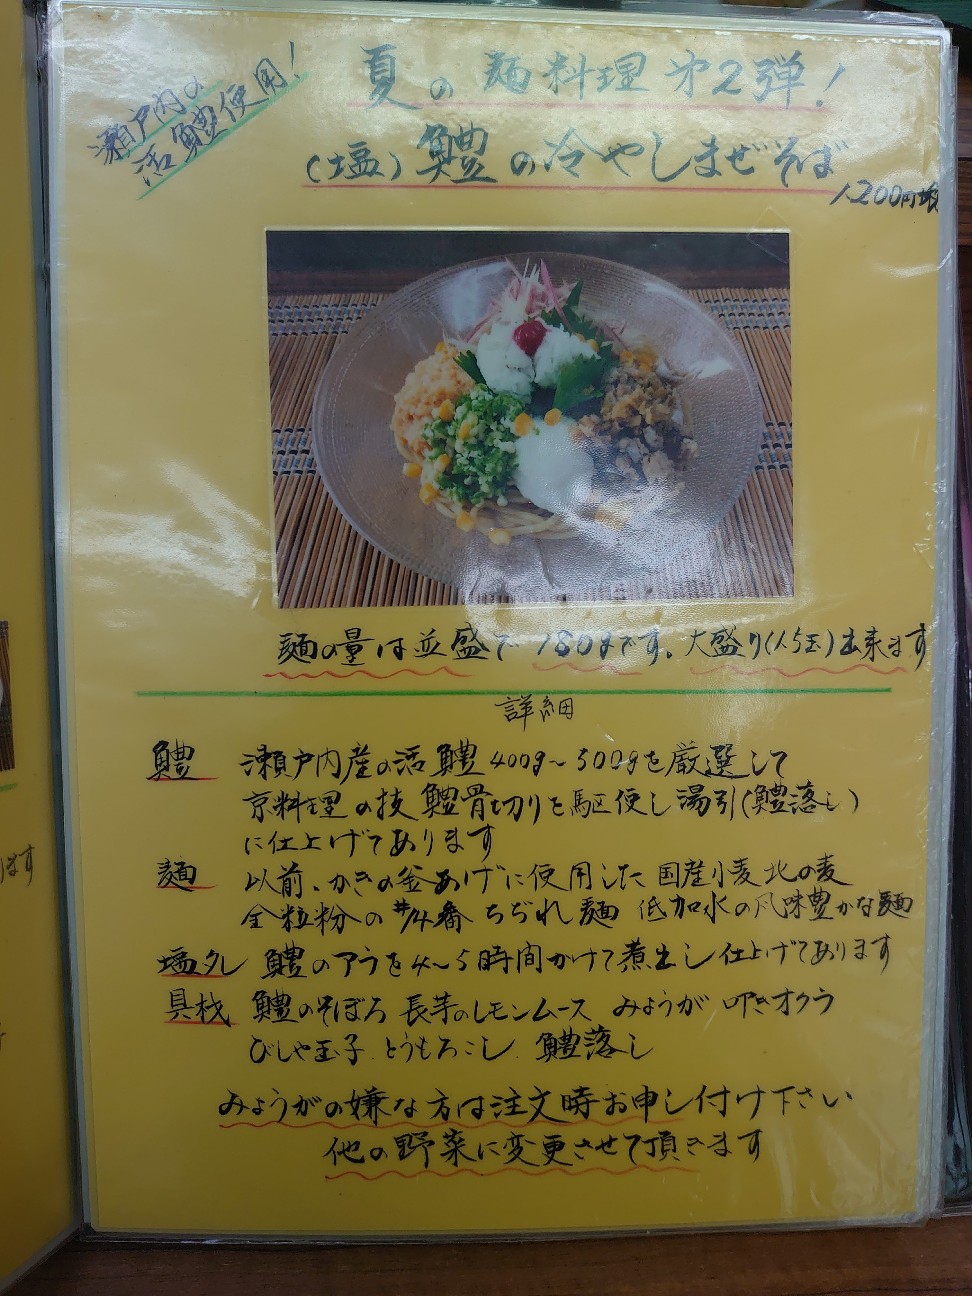 瀬戸内の
活鱧使用!
夏の麺料理第2弾!
(塩)鱧の冷やしまぜそば
1,200円
麺の量は並盛で180gです。大盛り(1.5玉)出来ます
詳細
鱧 瀬戸内産の活鱧400g〜500gを厳選して
京料理の技 鱧骨切りを駆使し湯引(鱧落し)
に仕上げてあります
麺 以前、かきの釜あげに使用した国産小麦北の麦
全粒粉の#14番 ちぢれ麺 低加水の風味豊かな麺
塩タレ 鱧のアラを4〜5時間かけて煮出し仕上げてあります
具材 鱧のそぼろ 長芋のレモンムース みょうが 叩きオクラ
びしゃ玉子 とうもろこし 鱧落し
みょうがの嫌な方は注文時お申し付け下さい
他の野菜に変更させて頂きます
ます